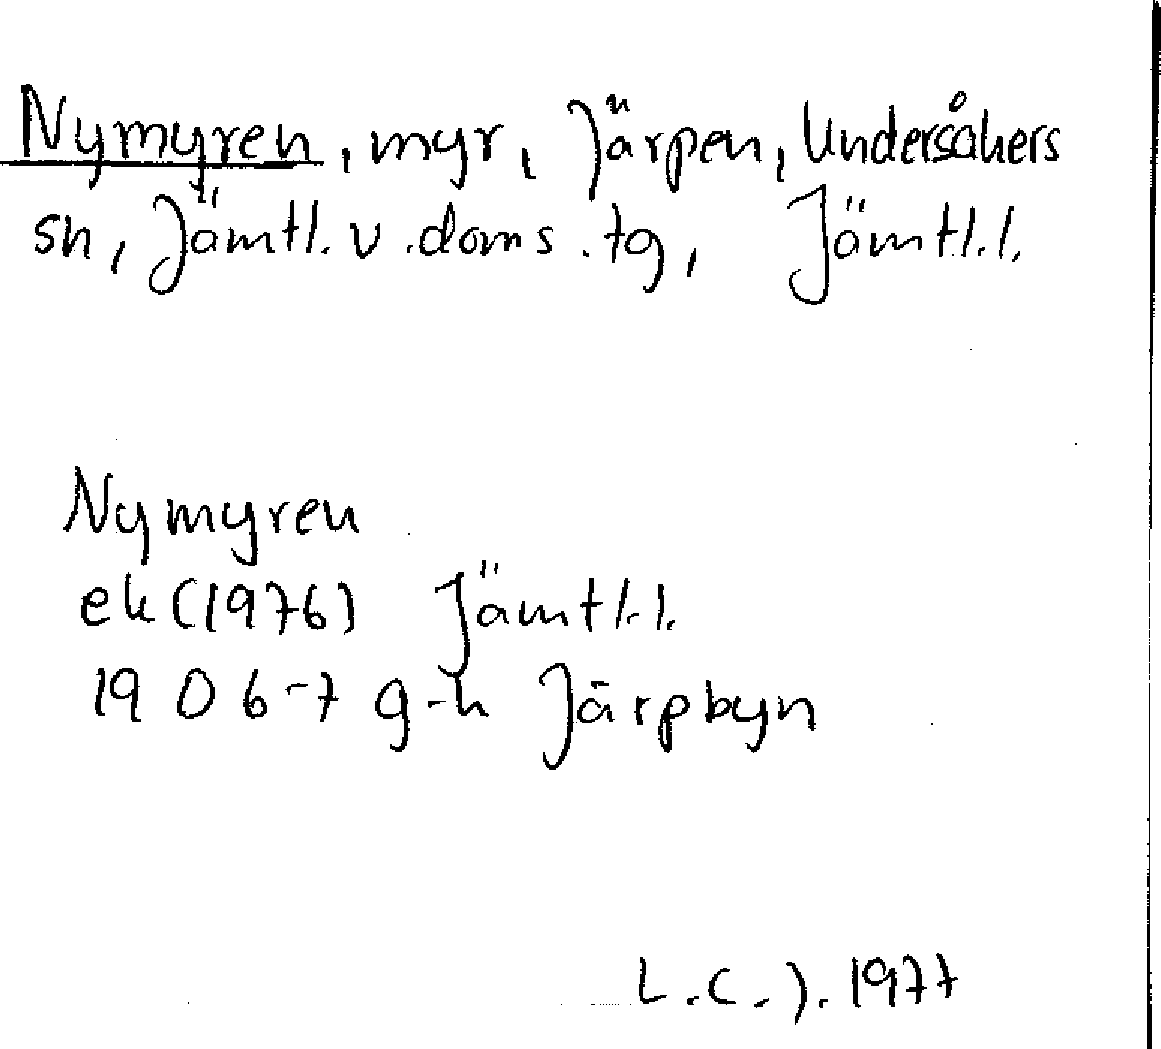 Nymyren, myr, Järpen, Undersåkers
sn, Jämtl. v. doms. tg, Jämtl.l.
Nymyren
ek (1976) Jämtl.l.
1906-7 g-h Järpbyn
L.C.J. 1977